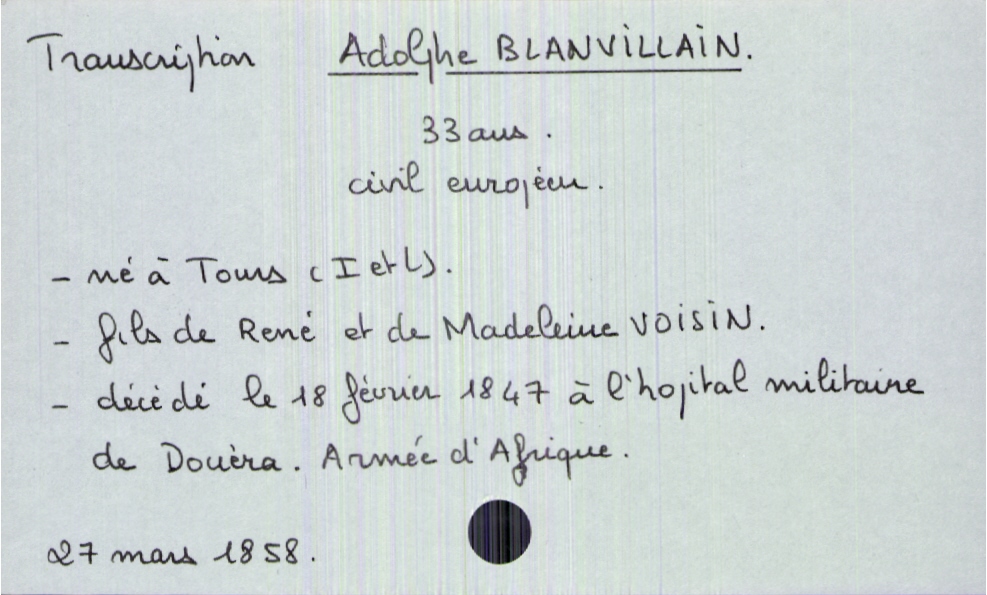 Transcription Adolphe BLANVILLAIN.
33 ans.
civil européen.
- né à Tours (I et L).
- fils de René et de Madeleine VOISIN.
- décédé le 18 février 1847 à l'hopital militaire
de Douèra. Armée d'Afrique.
27 mars 1858.